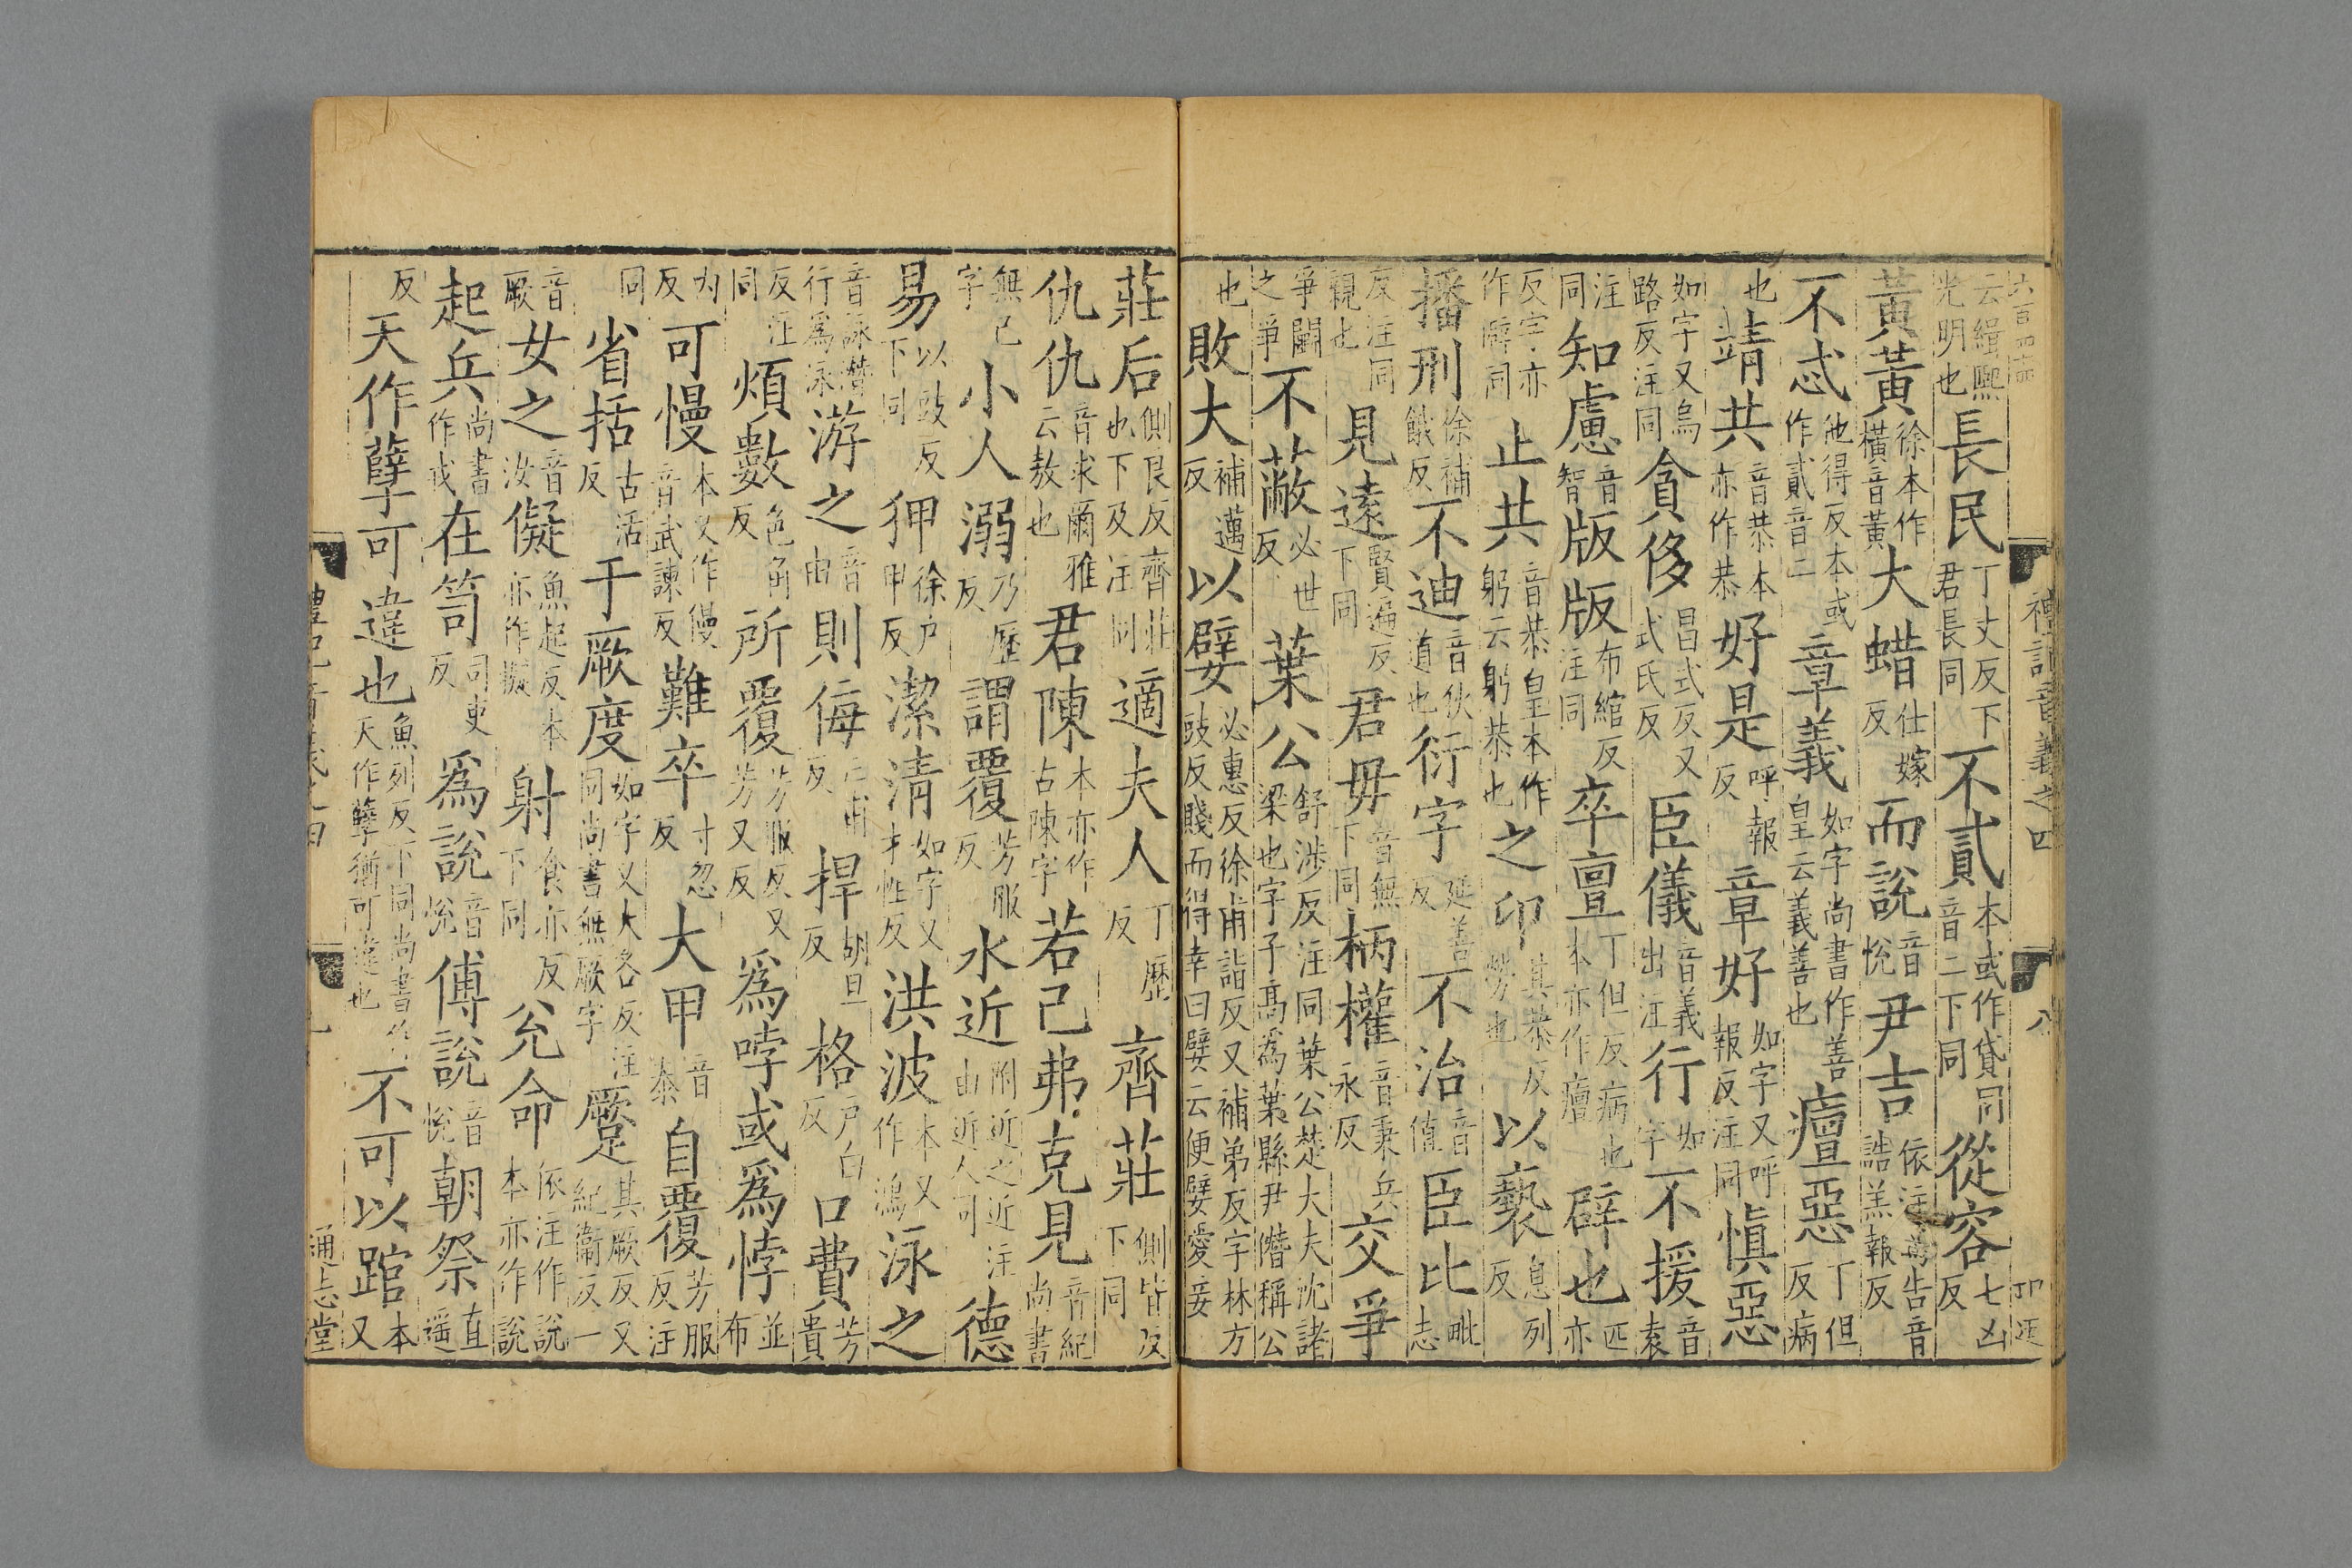 云緝熙光明也長民丁丈反下君長同不貳本或作貸同音二下同從容七凶反
黃黃徐本作橫音黃大蜡仕嫁反而說音悅尹吉依注爲告音誥羔報反
不忒他得反本或作貳音二章義如字尚書作善皇云義善也癉惡丁但反病
也靖共音恭本亦作恭好是呼報反章好如字又呼報反注同慎惡
如字又烏路反注同貪侈昌式反又式氏反臣儀音義出注行如字不援音袁
注同知慮音智版版布綰反注同卒亶丁但反病也本亦作癉辟也匹亦
反字亦作僻同止共音恭皇本作躬云躬恭也之卭其恭反勞也以褻息列反
播刑徐補餓反不迪音伙道也衍字延善反不治音值臣比毗志
反注同親也見遠賢遍反下同君毋音無下同柄權音秉兵永反交爭
爭鬭之爭不蔽必世反葉公舒涉反注同葉公楚大夫沈諸梁也字子高爲葉縣尹僭稱公
也敗大補邁反以嬖必惠反徐甫詣反又補弟反字林方豉反賤而得幸曰嬖云便嬖愛妾
禮記音義之四 八
莊后側良反齊莊也下及注同適夫人丁歷反齊莊側皆反下同
仇仇音求爾雅云敖也君陳本亦作古陳字若己弗克見音紀尚書
無己字小人溺乃歷反謂覆芳服反水近附近之近注由近人可德
易以豉反下同狎徐戶甲反潔清如字又才性反洪波本又作鴻泳之
音詠潛行爲泳游之音由則侮亡甫反捍胡旦反格戶白反口費芳貴
反注同煩數色角反所覆芳服反又芳又反爲哱或爲悖並布
內反可慢本又作僈音武諫反難卒寸忽反大甲音泰自覆芳服反注
同省括古活反于厥度如字又大各反注同尚書無厥字蹷其厥反又紀衛反一
音厥女之音汝儗魚起反本亦作擬射食亦反下同兊命依注作說本亦作說
起兵尚書作戎在笥司吏反爲說音悅傅說音悅朝祭直遥
反天作孽可違也魚列反下同尚書作天作孽猶可違也不可以踣本又
通志堂